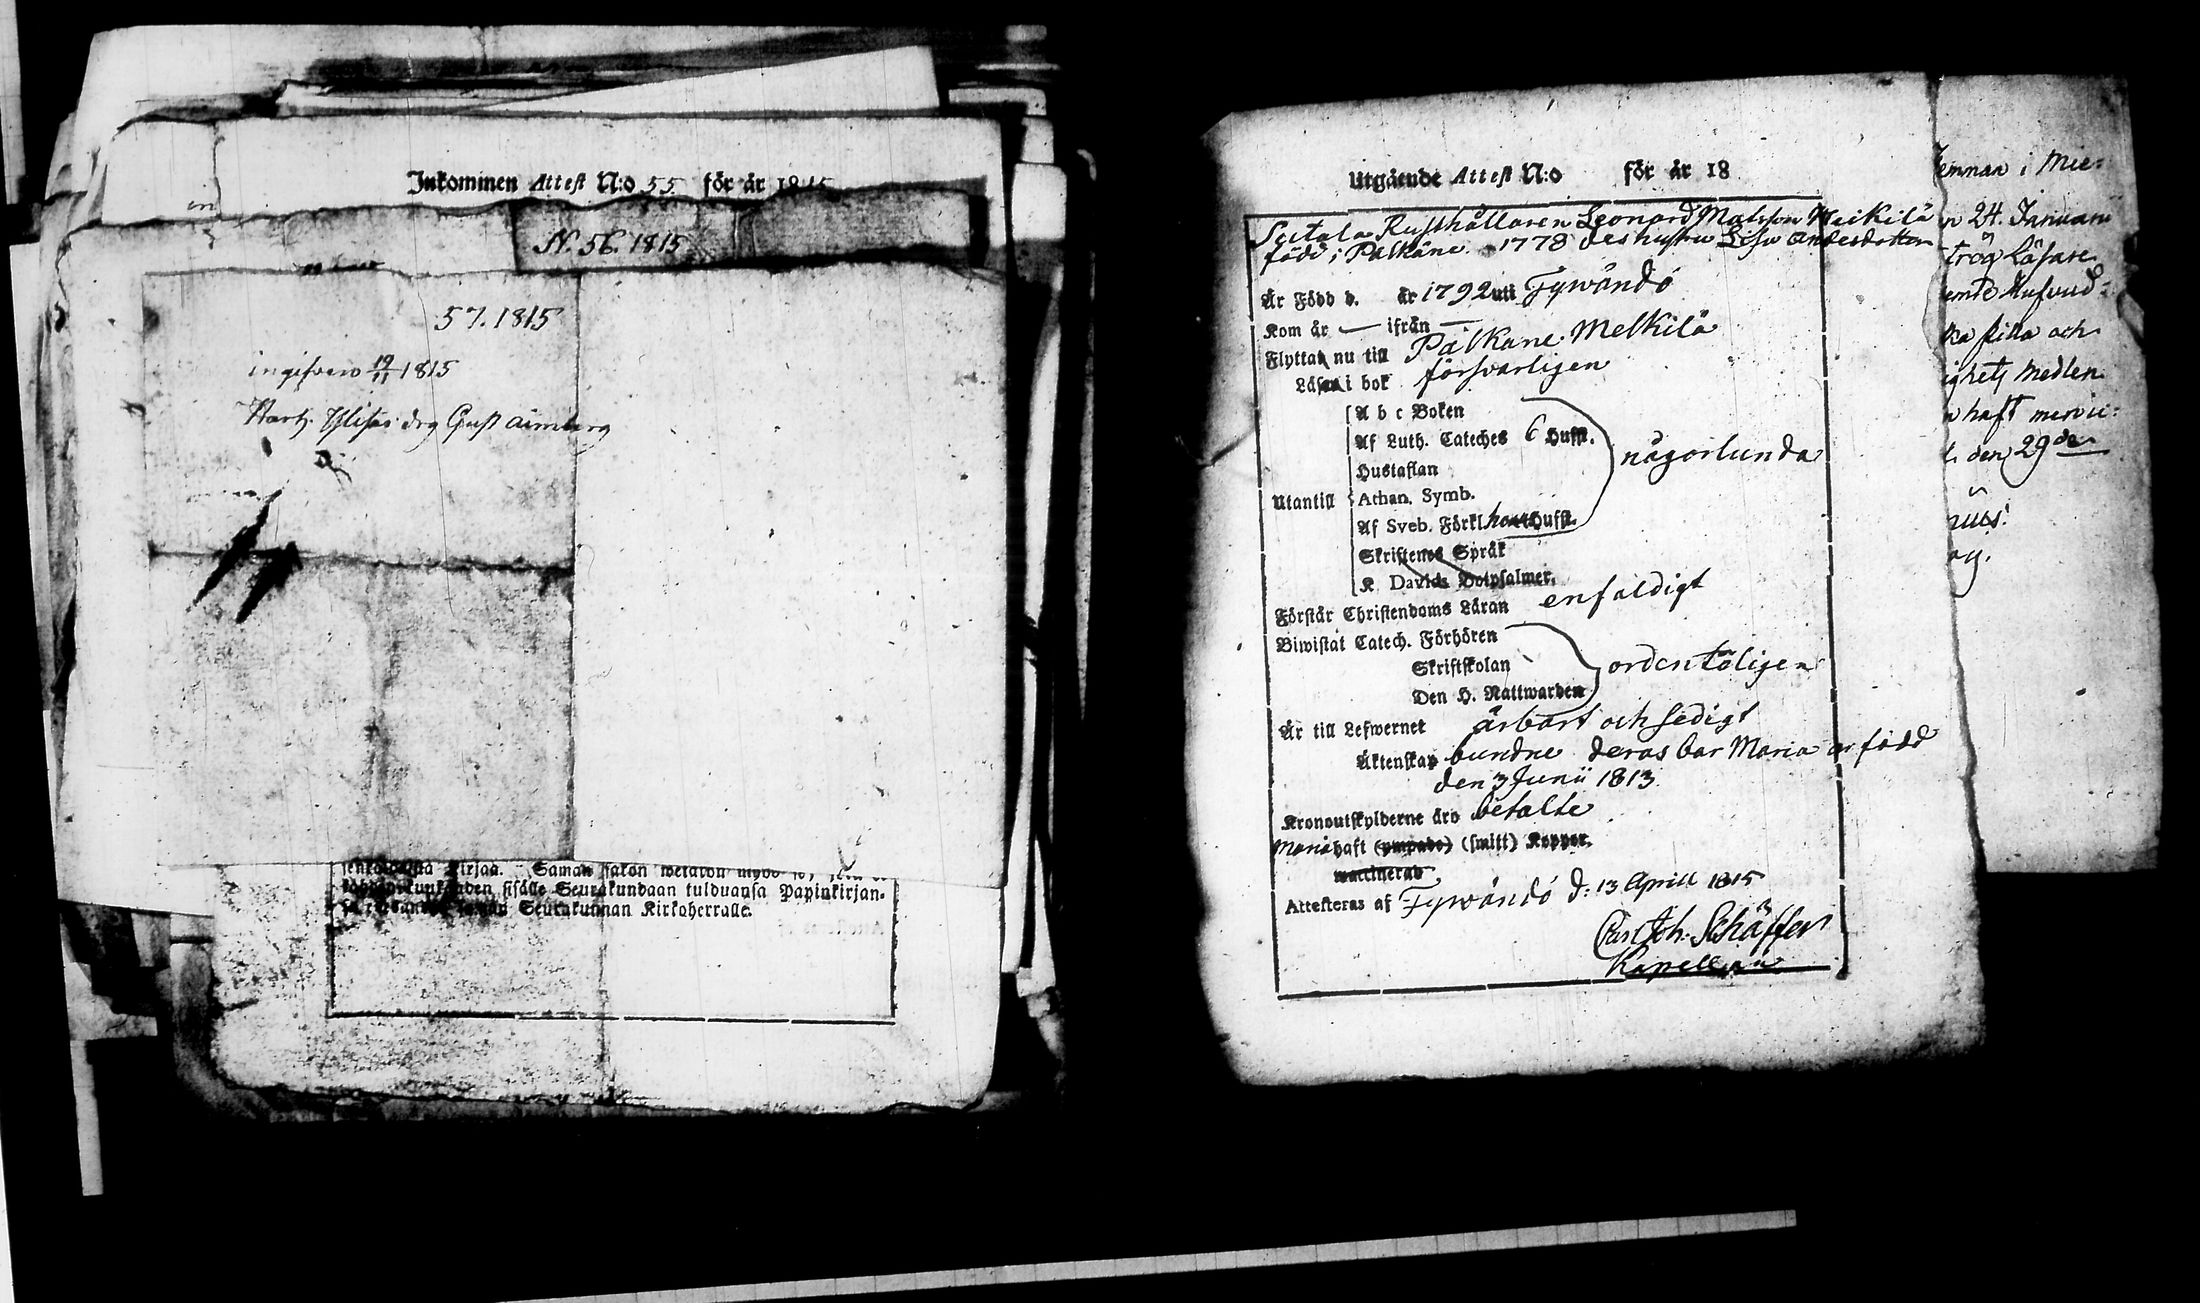 Inkommen Attest N:o 55 för år 1815
N. 56. 1815
57. 1815
ingifven 19/11 1815
kirjaa. Saman
sisälle Seurakundaan tulduansa Papinkirjan-
Seurakunnan Kirkoherralle.
Utgående Attest N:o för år 18
Rusthållaren Leonard Matsson Heikilä
född i Pälkäne 1778 des hustru Lisa Andersdotter
Är Född d. år 1792 uti Tywändö
Kom år — ifrån —
Flyttar nu till Pälkäne Melkilä
Läsa i bok försvarligen
A b c Boken
Af Luth. Cateches 6 Hufst.
Hustaflan
någorlunda
Utantill Athan. Symb.
Af Sveb. Förkl. Hufst.
Skriftenes Språk
K Davids Botpsalmer.
Förstår Christendoms Läran enfaldigt
Biwistat Catech. Förhören
Skriftskolan ordenteligen
Den H. Nattwarden
Är till Lefwernet ärbart och sedigt
Äktenskap bundne deras bar Maria är född
den 3 Junii 1813.
Kronoutskylderne äro betalte
Maria haft (ympade) (smitt) Koppor.
vaccinerad
Attesteras af Tywändö d: 13 Aprill 1815
Carl Joh. Schäffer
Kapellan
i Mie-
24. Januarii
Läsare
och
Medlem
haft
den 29de